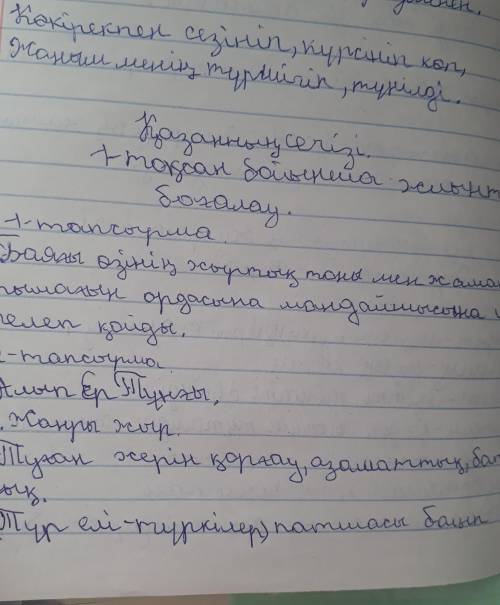 Көкірекпен сезініп, күрсініп көп,
Жаным менің түршігіп, түңілді.
Қазанның сегізі.
1-тоқсан бойынша жиынт
бағалау.
1-тапсырма.
Баяғы өзінің жыртық тоны мен жаман
тымағын ордасына маңдайшысына
ілеп қойды.
-тапсырма.
Алып Ер Тұңғы,
Жанры жыр.
Туған жерін қорғау, азаматтық, бат
ық.
Тұр елі-түркілер) патшасы болып